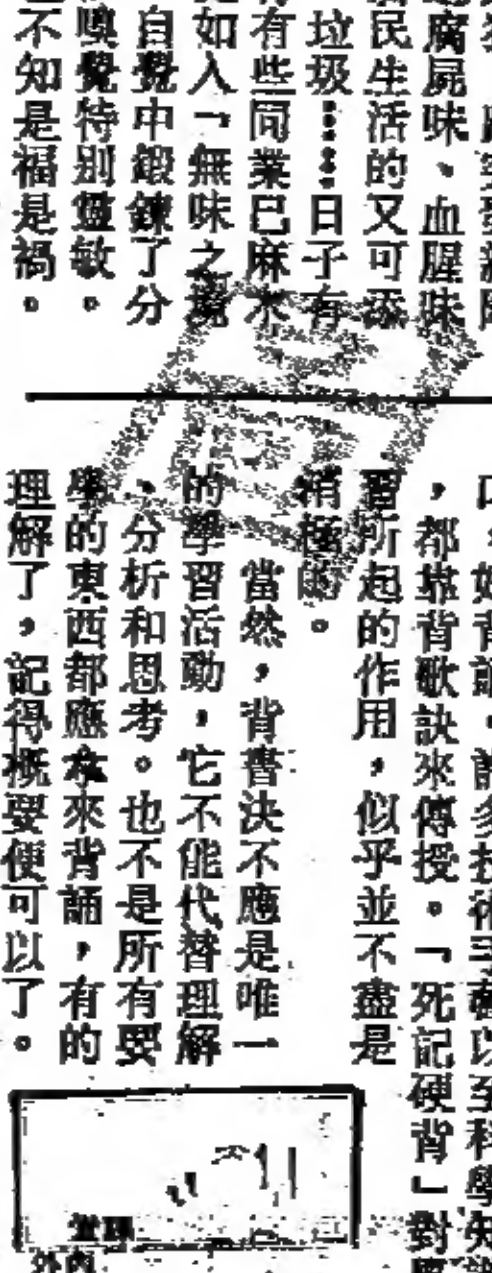 腐屍味、血腥味
民生活的又可添
垃圾……日子有
有些同業已麻木
如入「無味之境
自覺中鍛鍊了分
嗅覺特別靈敏。
不知是福是禍。
，都靠背歌訣來傳授。「死記硬背」對
習所起的作用，似乎並不盡是
消極的。
當然，背書決不應是唯一
的學習活動，它不能代替理解
、分析和思考。也不是所有要
學的東西都應拿來背誦，有的
理解了，記得概要便可以了。